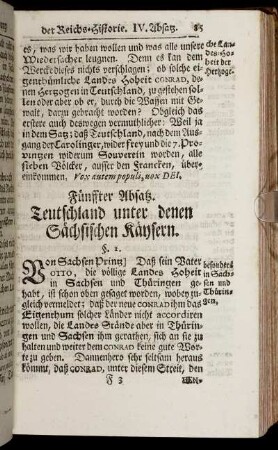 der Reichs-Historie. IV. Absatz. 85
es, was wir haben wollen und was alle unsere
Wiedersacher leugnen. Denn es kan dem
Wercke dieses nichts verschlagen; ob solche ei-
genthümliche Landes Hoheit CONRAD, de-
nen Hertzogen in Teutschland, zu gestehen sol-
len oder aber ob er, durch die Waffen mit Ge-
walt, dazu gebracht worden? Obgleich das
erstere auch deswegen vermuthlicher: Weil ja
in dem Satz; daß Teutschland, nach dem Aus-
gang der Carolinger, wider frey und die 7. Pro-
vintzen widerum Souverain worden, alle
solchen Völcker, ausser den Francken, über-
einkommen. Vox autem populi, vox DEI.
che Lan-
des-Ho-
heit der
Hertzoge.
Fünffter Absatz.
Teutschland unter denen
Sächsischen Käysern.
§. 1.
Von Sachsen Printz) Daß sein Vater
OTTO, die völlige Landes Hoheit
in Sachsen und Thüringen ge-
habt, ist schon oben gesaget worden, wobey zu-
gleich vermeldet; daß der neue CONRAD ihm das
Eigenthum solcher Länder nicht accordiren
wollen, die Landes Stände aber in Thürin-
gen und Sachsen ihm gerathen, sich an sie zu
halten und weiter dem CONRAD keine gute Wor-
te zu geben. Dannenhero sehr seltsam heraus
kommt, daß CONRAD, unter diesem Streit, den
besonders
in Sach-
sen und
Thürin-
gen,
F 3